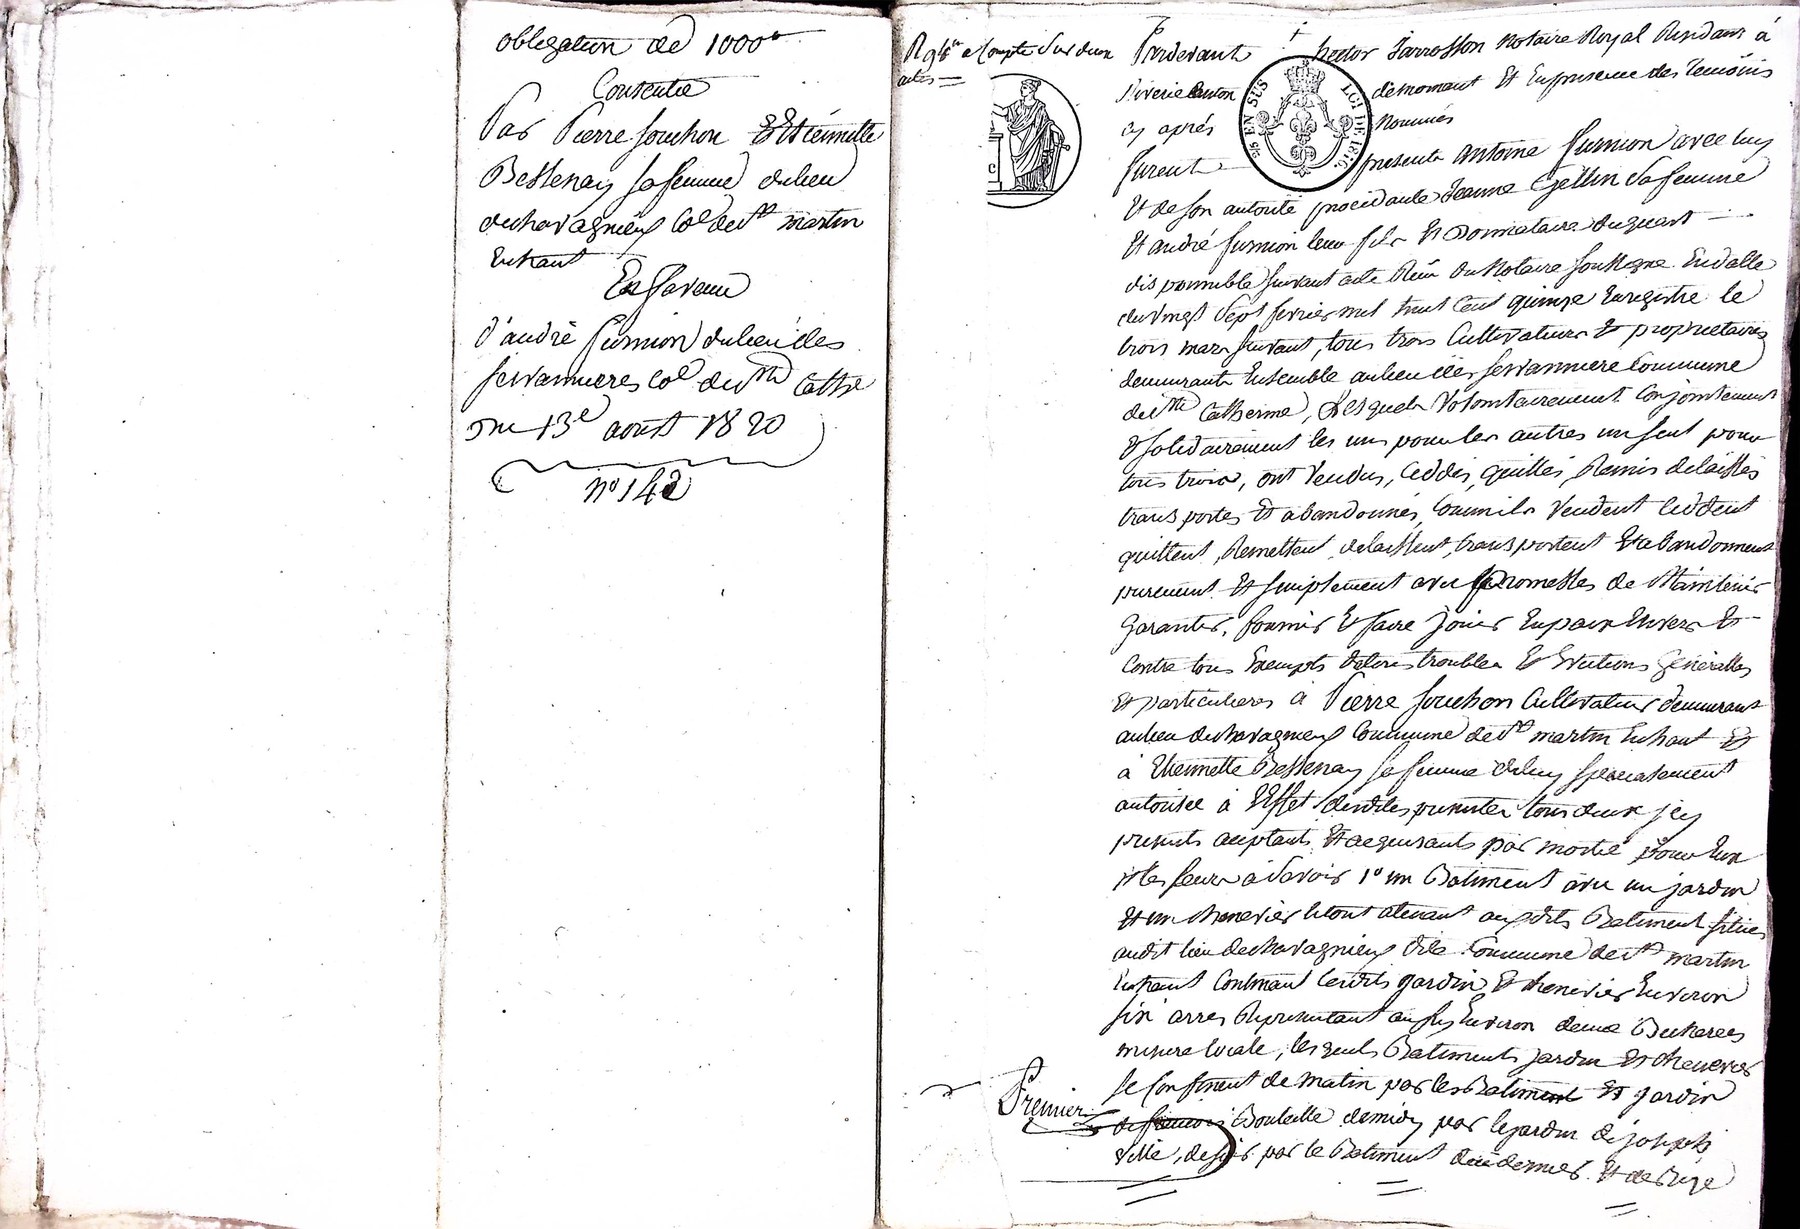 obligation de 1000 fr
Consentie
Par Pierre Souchon Et Etiennette
Bessenay sa femme du lieu
de chavagnieux Cne de St martin
En haut
En faveur
d'andré furnion du lieu des
servannieres cne de ste Cathe
Du 13e aoust 1820
no 142
Rg le Compte Sur deux
actes
Pardevant hector Jarrosson notaire Royal Residant à
Riverie Canton de mornant Et En presence des temoins
cy aprés Nommés
EN SUS
LOI DE 1816
furent presents antoine furnion avec luy
Et de son autorité procédante Jeanne Gellin Sa femme
Et andré furnion leur fils Et Donnataire du quart
disponnible suivant acte Reçu du Notaire soussigne En datte
du vingt Sept fevrier mil huit Cent quinze Enregistre le
trois mars suivant, tous trois Cultivateurs Et proprietaires
demeurants Ensemble au lieu des servanniere Commune
de ste Catherine, Lesquels Volontairement Conjointement
Et solidairement les uns pour les autres un seul pour
tous trois, ont Vendus, Ceddés, quittés, Remis delaissés
transportés Et abandonnés, Comme ils Vendent Ceddent
quittent, Remettent, delaissent, transportent Et abandonnent
purement Et simplement avec promesses de Maintenir
Garantir, fournir Et faire jouir En paix Envers Et
Contre tous Exempts de tous troubles Et Evictions Générallés
Et particulieres à Pierre Souchon Cultivateur demeurant
au lieu de chavagnieux Commune de St martin En haut Et
à Etiennette Bessenay sa femme de luy specialement
autorisée à l'Effet des dites presentes tous deux jcy
presents acceptants Et acquerants par moitié pour Eux
Et les leurs à Savoir 1o un Batiment avec un jardin
Et un chenevier le tout attenant aux dits Batiment situés
au dit lieu de chavagnieux dite Commune de St martin
En haut Contenant les dits jardin Et chenevier Environ
six arres Representant aussy Environ deux Bicherées
mesure locale, lesquels Batiments jardin Et chenevier
se Confinent de matin par les Batiment Et jardin
de francois Bouteille de midy par le jardin de joseph
Ville, de soir par le Batiment de ce dernier Et de Bize
Premier